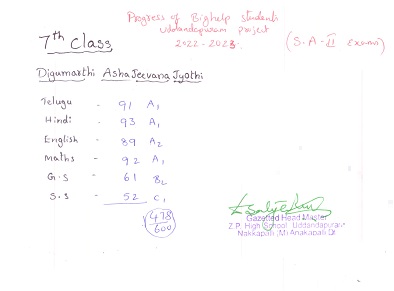 Progress of Bighelp students
Uddandapuram project
2022-2023.
(S.A-II Exams)
7th Class
Digumarthi Asha Jeevana Jyothi
Telugu - 91 A1
Hindi - 93 A1
English - 89 A2
Maths - 92 A1
G.S - 61 B2
S.S - 52 C1
478
600
Gazetted Head Master
Z.P. High School, Uddandapuram
Nakkapalli (M) Anakapalli Dt